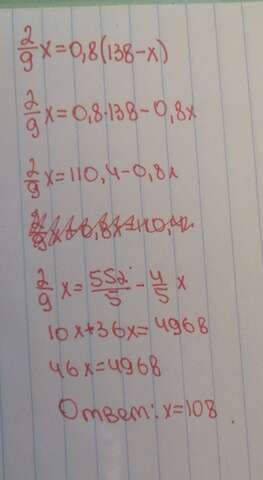 2/9 x=0,8(138-x)
2/9 x=0,8·138-0,8x
2/9 x=110,4-0,8x
2/9 x=552/5-4/5 x
10x+36x=4968
46x=4968
Ответ: x=108